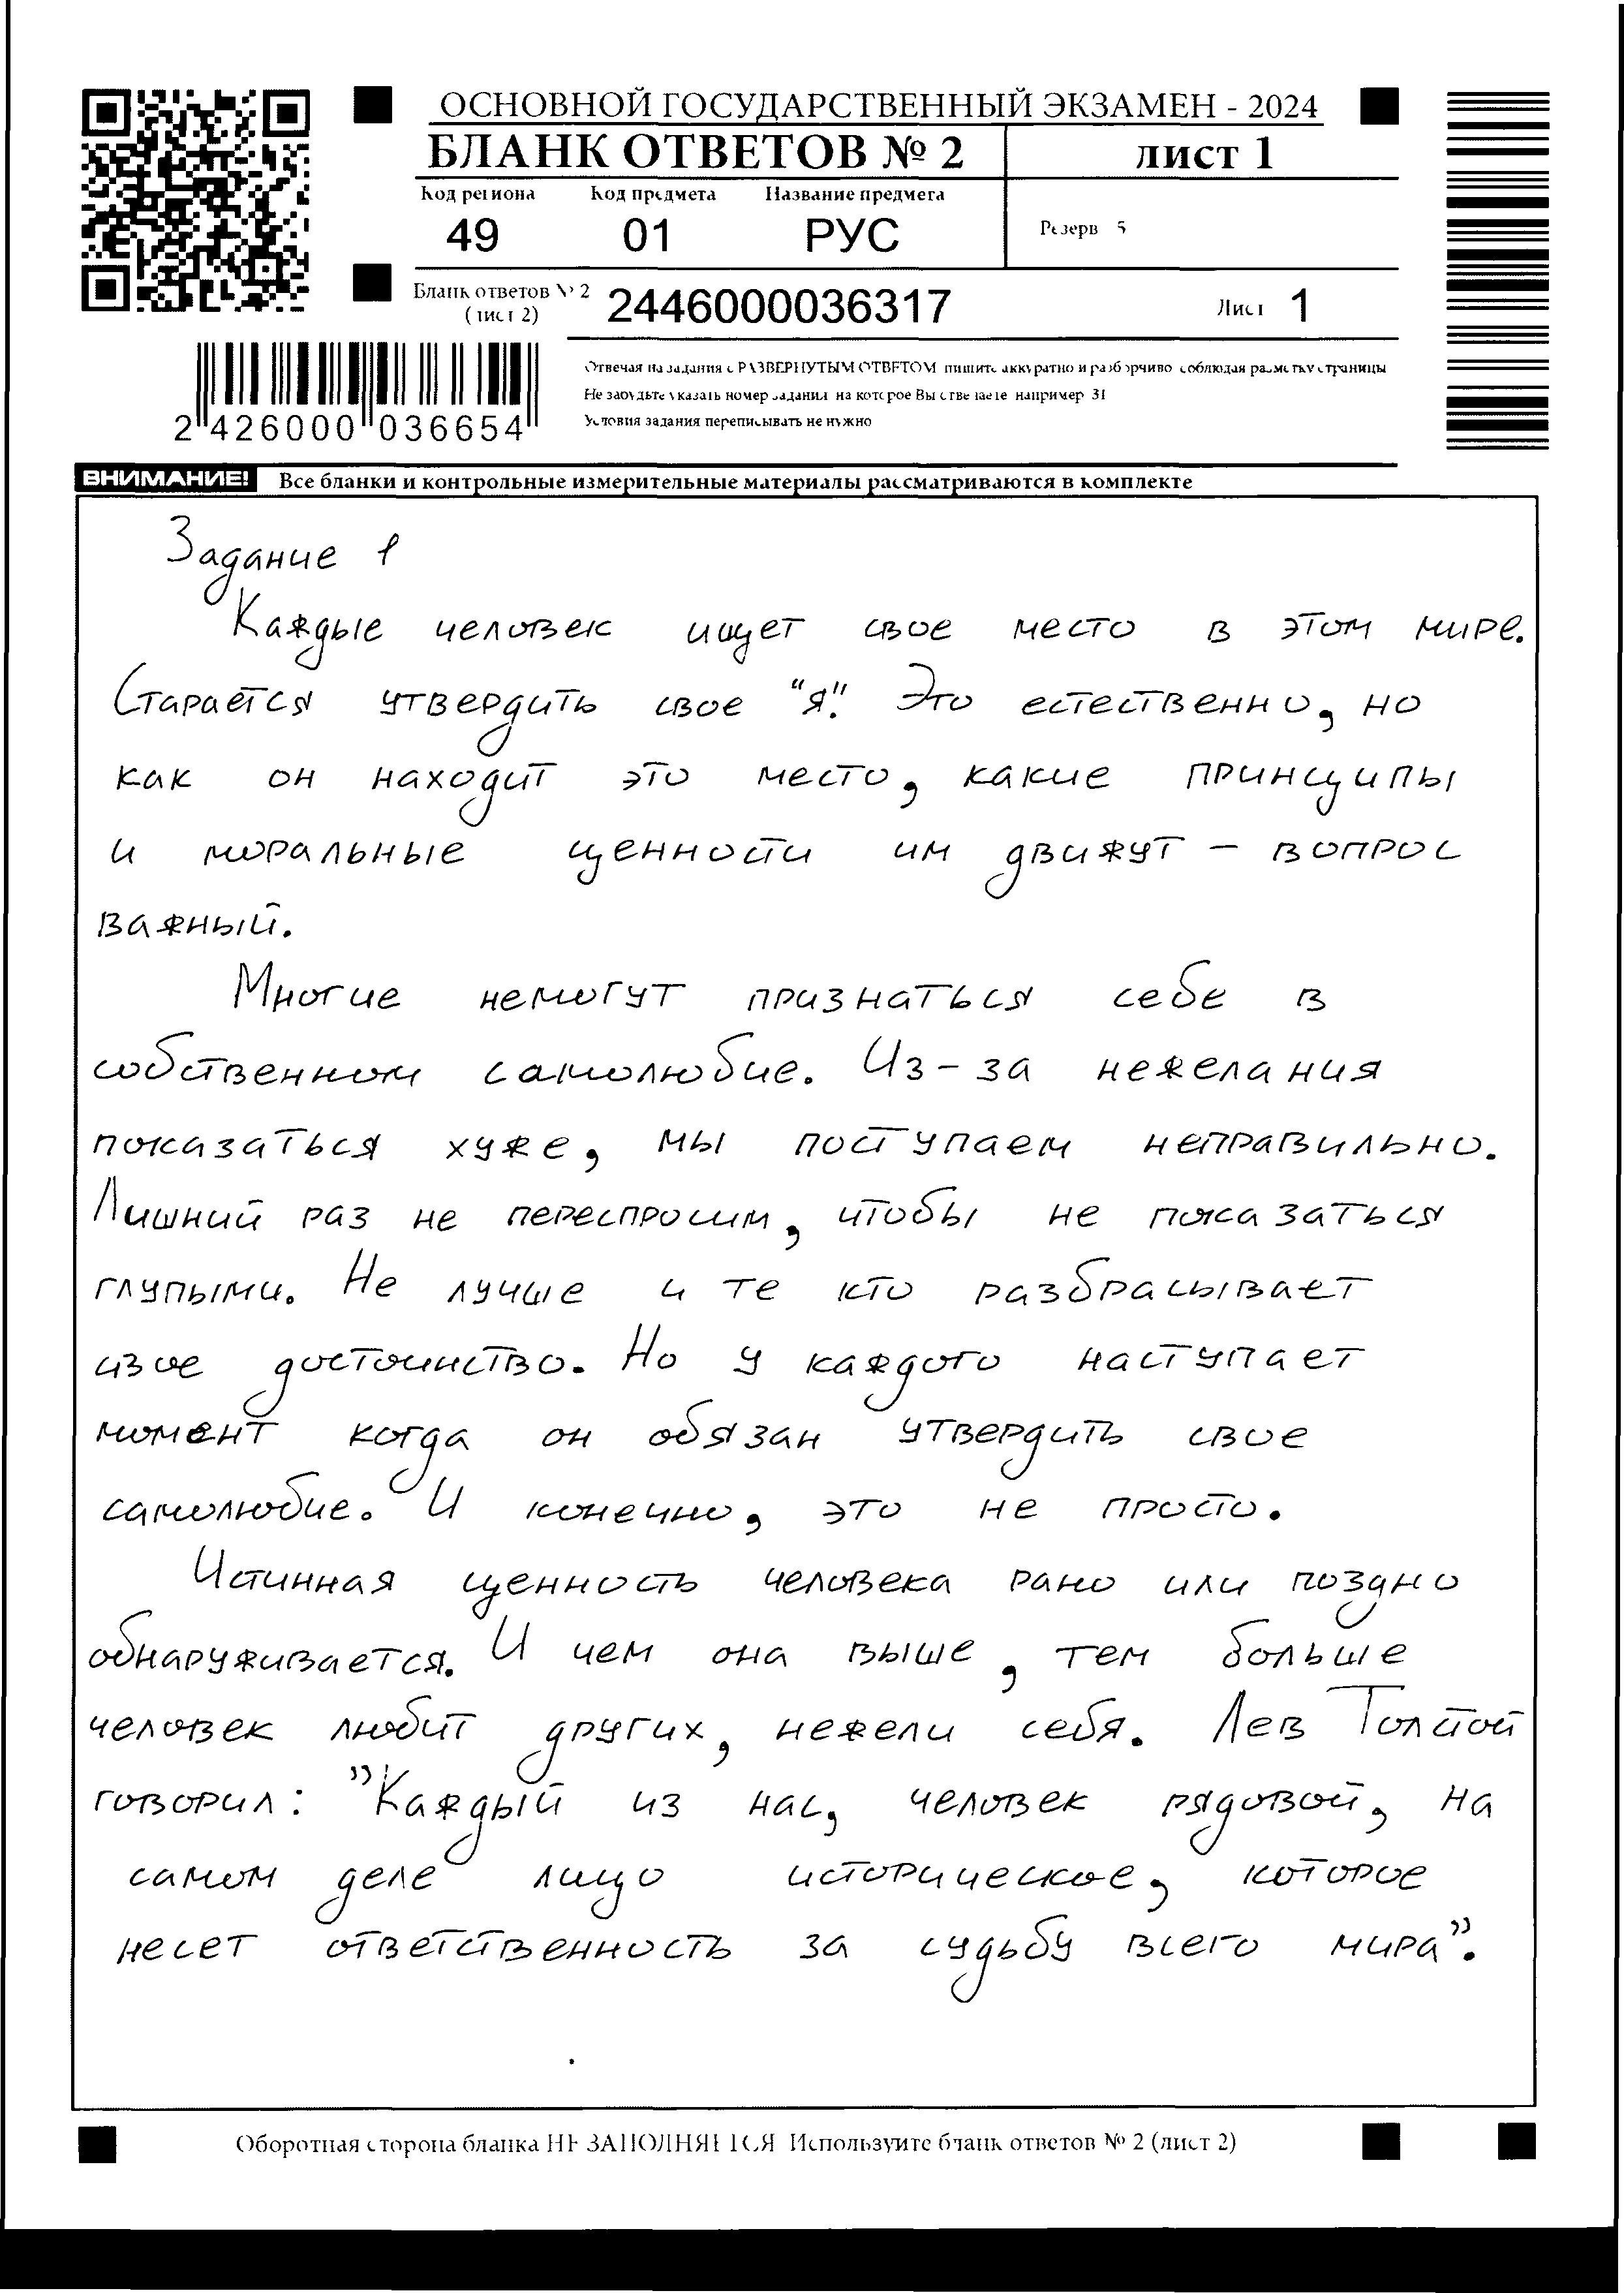 ОСНОВНОЙ ГОСУДАРСТВЕННЫЙ ЭКЗАМЕН - 2024
БЛАНК ОТВЕТОВ № 2
ЛИСТ 1
Код региона Код предмета Название предмета
49 01 РУС
Резерв 5
Бланк ответов № 2
(лист 2)
2446000036317
Лист 1
Отвечая на задания с РАЗВЕРНУТЫМ ОТВЕТОМ пишите аккуратно и разборчиво соблюдая разметку страницы
Не забудьте указать номер задания на которое Вы отвечаете например 31
Условия задания переписывать не нужно
2 426000 036654
ВНИМАНИЕ! Все бланки и контрольные измерительные материалы рассматриваются в комплекте
Задание 1
Каждые человек ищет свое место в этом мире.
Старается утвердить свое "я". Это естественно, но
как он находит это место, какие принципы
и моральные ценности им движут - вопрос
важный.
Многие немогут признаться себе в
собственном самолюбие. Из-за нежелания
показаться хуже, мы поступаем неправильно.
Лишний раз не переспросим, чтобы не показаться
глупыми. Не лучше и те кто разбрасывает
изое достоинство. Но у каждого наступает
момент когда он обязан утвердить свое
самолюбие. И конечно, это не просто.
Истинная ценность человека рано или поздно
обнаруживается. И чем она выше, тем больше
человек любит других, нежели себя. Лев Толстой
говорил: "Каждый из нас, человек рядовой, на
самом деле лицо историческое, которое
несет ответственность за судьбу всего мира".
Оборотная сторона бланка НЕ ЗАПОЛНЯЕТСЯ Используйте бланк ответов № 2 (лист 2)